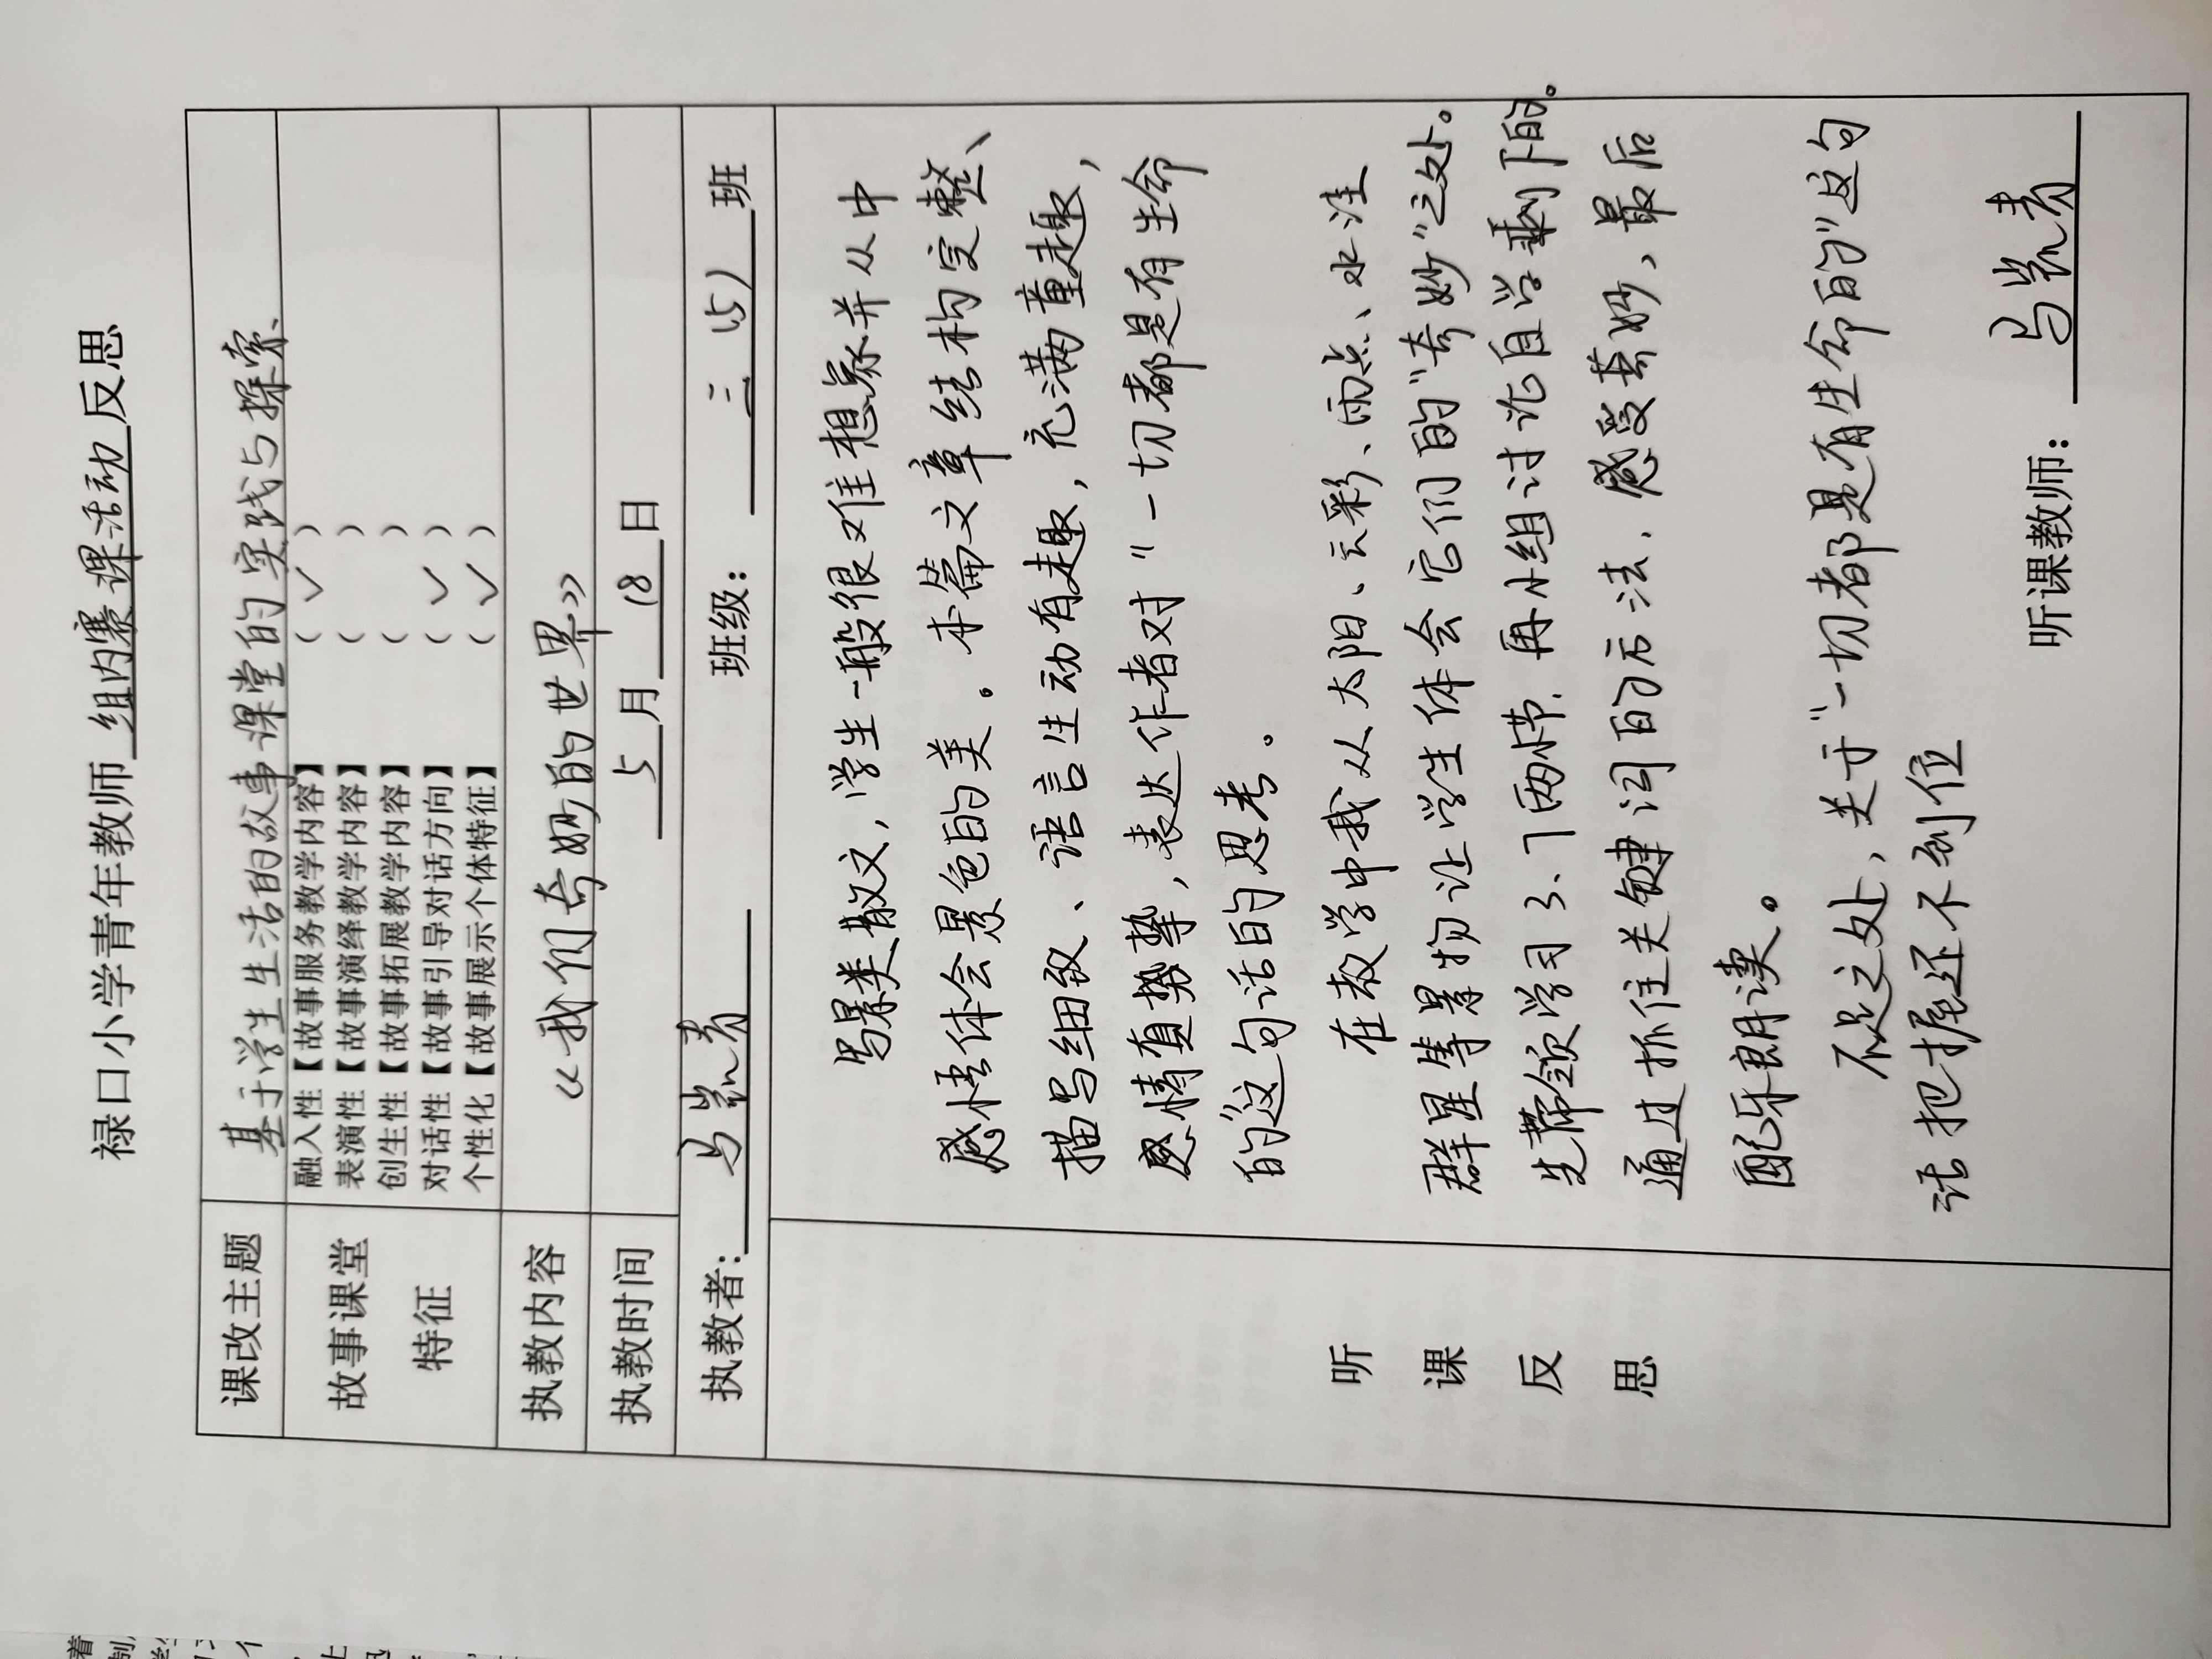 禄口小学青年教师 组内赛课活动 反思
课改主题 基于学生生活的故事课堂的实践与探索
故事课堂
特征
融入性【故事服务教学内容】 ( ✓ )
表演性【故事演绎教学内容】 ( )
创生性【故事拓展教学内容】 ( )
对话性【故事引导对话方向】 ( ✓ )
个性化【故事展示个体特征】 ( ✓ )
执教内容 《我们奇妙的世界》
执教时间 5 月 18 日
执教者: 马凯青 班级: 三(5) 班
听
课
反
思
写景类散文,学生一般很难想象并从中
感悟体会景色的美。本篇文章结构完整、
描写细致、语言生动有趣,充满童趣,
感情真挚,表达作者对"一切都是有生命
的"这句话的思考。
在教学中我从太阳、云彩、雨点、水洼
群星等景物让学生体会它们的"奇妙"之处。
先带领学习3、7两小节,再小组讨论自学剩下的。
通过抓住关键词的方法,感受奇妙,最后
配乐朗读。
不足之处,关于"一切都是有生命的"这句
话把握还不到位
听课教师: 马凯青